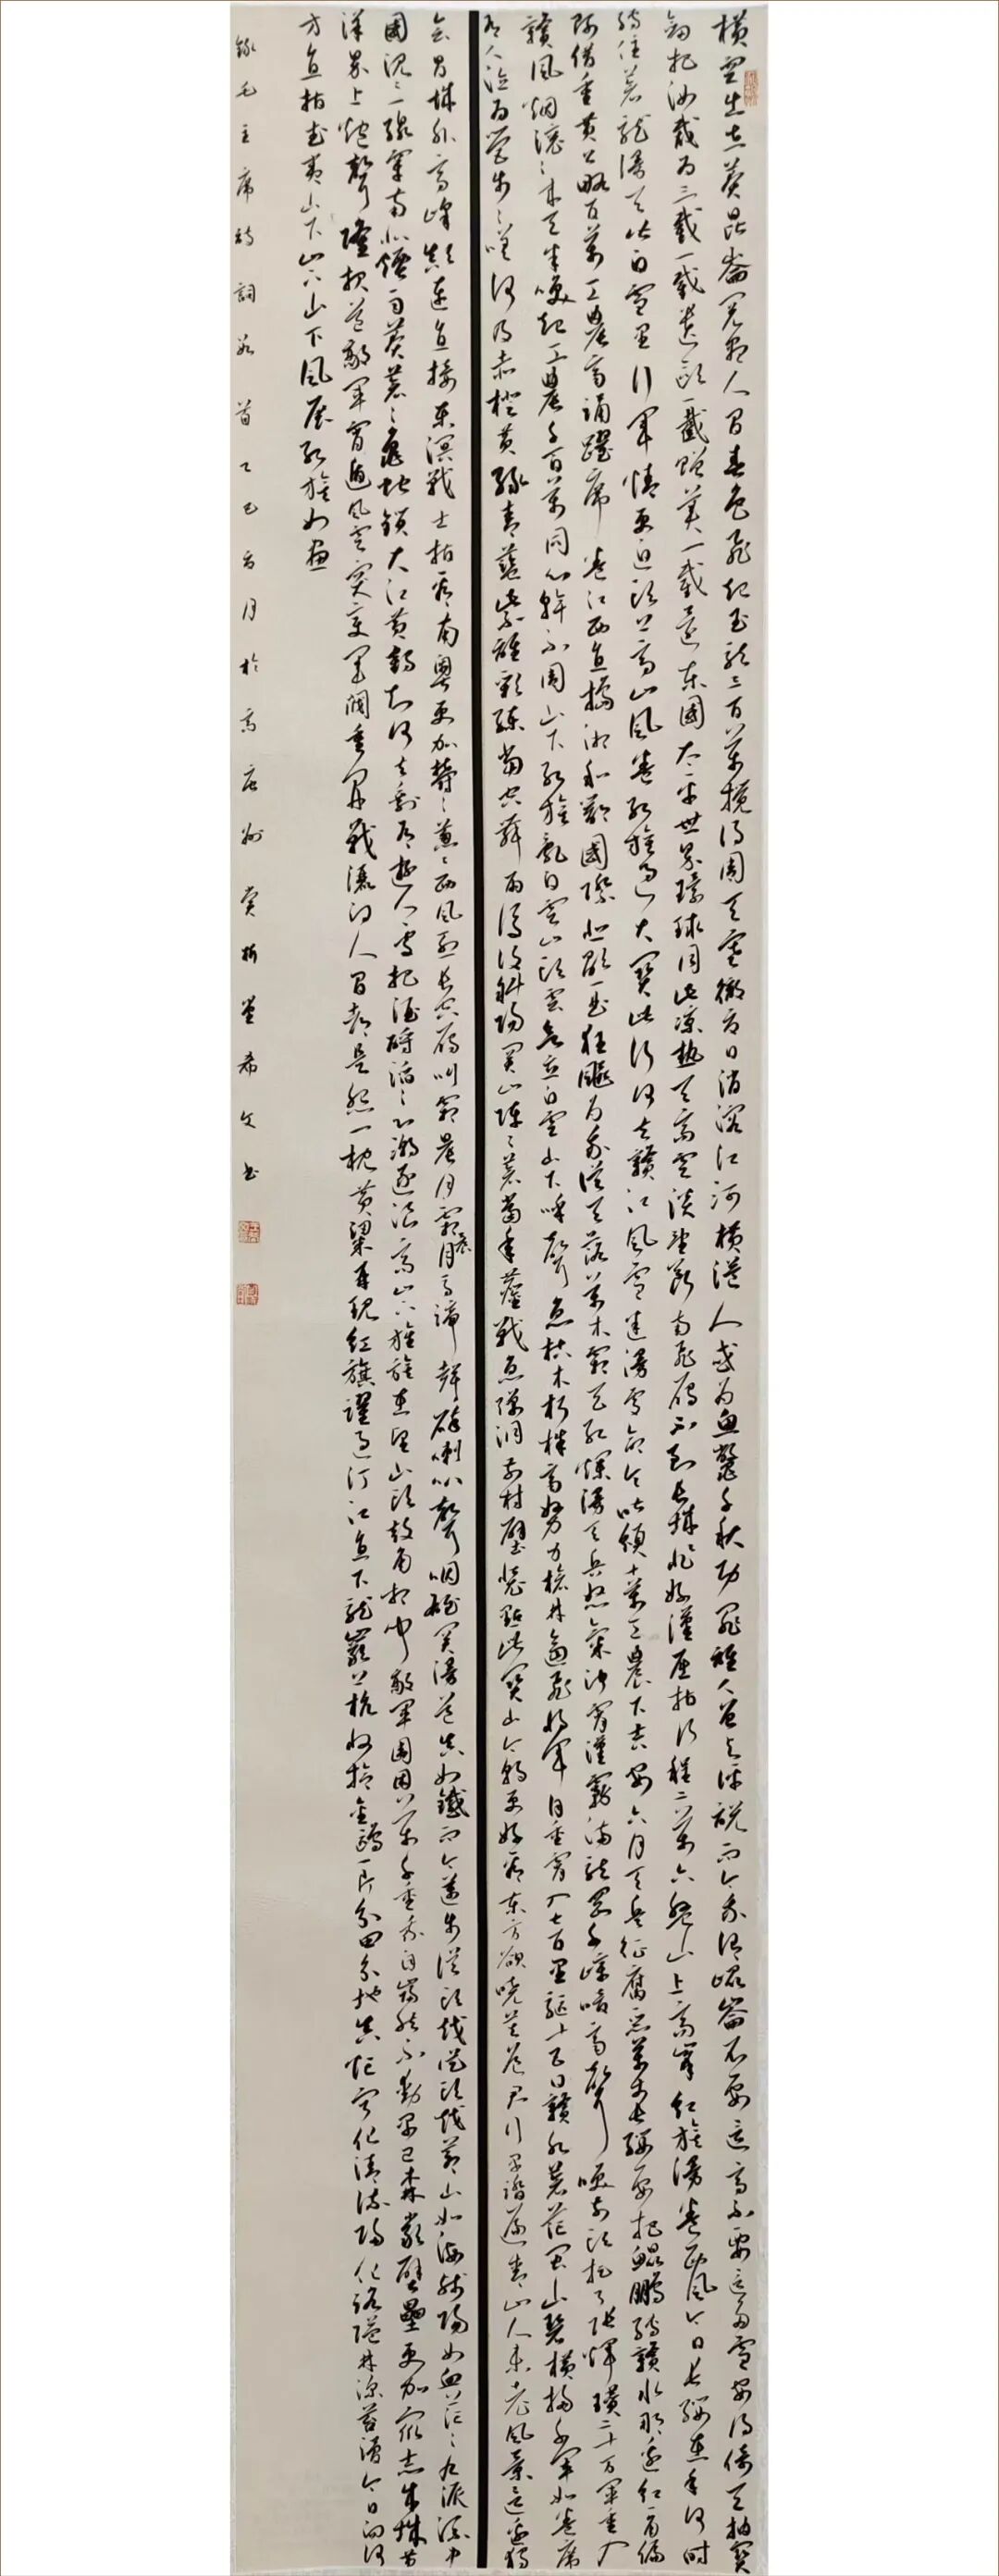 橫空出世莽昆崙閱盡人間春色飛起玉龍三百萬攪得周天寒徹夏日消溶江河橫溢人或為魚鱉千秋功罪誰人曾與評說而今我謂崑崙不要這高不要這多雪安得倚天抽寶
劍把汝裁為三截一截遺歐一截贈美一截還東國太平世界環球同此涼熱天高雲淡望斷南飛雁不到長城非好漢屈指行程二萬六盤山上高峰紅旗漫卷西風今日長纓在手何時
縛住蒼龍漫天皆白雪里行軍情更迫頭上高山風卷紅旗過大關此行何去贛江風雪迷漫處命令昨頒十萬工農下吉安六月天兵征腐惡萬丈長纓要把鯤鵬縛贛水那邊紅一角偏
師借重黃公略百萬工農齊踴躍席卷江西直搗湘和鄂國際悲歌一曲狂飆為我從天落萬木霜天紅爛漫天兵怒氣沖霄漢霧滿龍岡千嶂暗齊聲喚前頭捉了張輝瓚二十萬軍重入
贛風煙滾滾來天半喚起工農千百萬同心幹不周山下紅旗亂白雲山頭雲欲立白雲山下呼聲急枯木朽株齊努力槍林逼飛將軍自重霄入七百里驅十五日贛水蒼茫閩山碧橫掃千軍如卷席
有人泣為營步步嗟何及赤橙黃綠青藍紫誰持彩練當空舞雨後復斜陽關山陣陣蒼當年鏖戰急彈洞前村壁裝點此關山今朝更好看東方欲曉莫道君行早踏遍青山人未老風景這邊獨
會昌城外高峰顛連直接東溟戰士指看南粵更加鬱鬱蔥蔥西風烈長空雁叫霜晨月霜晨月馬蹄聲碎喇叭聲咽雄關漫道真如鐵而今邁步從頭越從頭越蒼山如海殘陽如血茫茫九派流中
國沉沉一線穿南北煙雨莽蒼蒼龜蛇鎖大江黃鶴知何去剩有遊人處把酒酹滔滔心潮逐浪高山下旌旗在望山頭鼓角相聞敵軍圍困萬千重我自巋然不動早已森嚴壁壘更加眾志成城黃
洋界上炮聲隆報道敵軍宵遁風雲突變軍閥重開戰灑向人間都是怨一枕黃粱再現紅旗躍過汀江直下龍巖上杭收拾金甌一片分田分地真忙寧化清流歸化路隘林深苔滑今日向何
方直指武夷山下山下山下風展紅旗如畫
錄毛主席詩詞數首乙巳月於高唐州賞析堂希文書